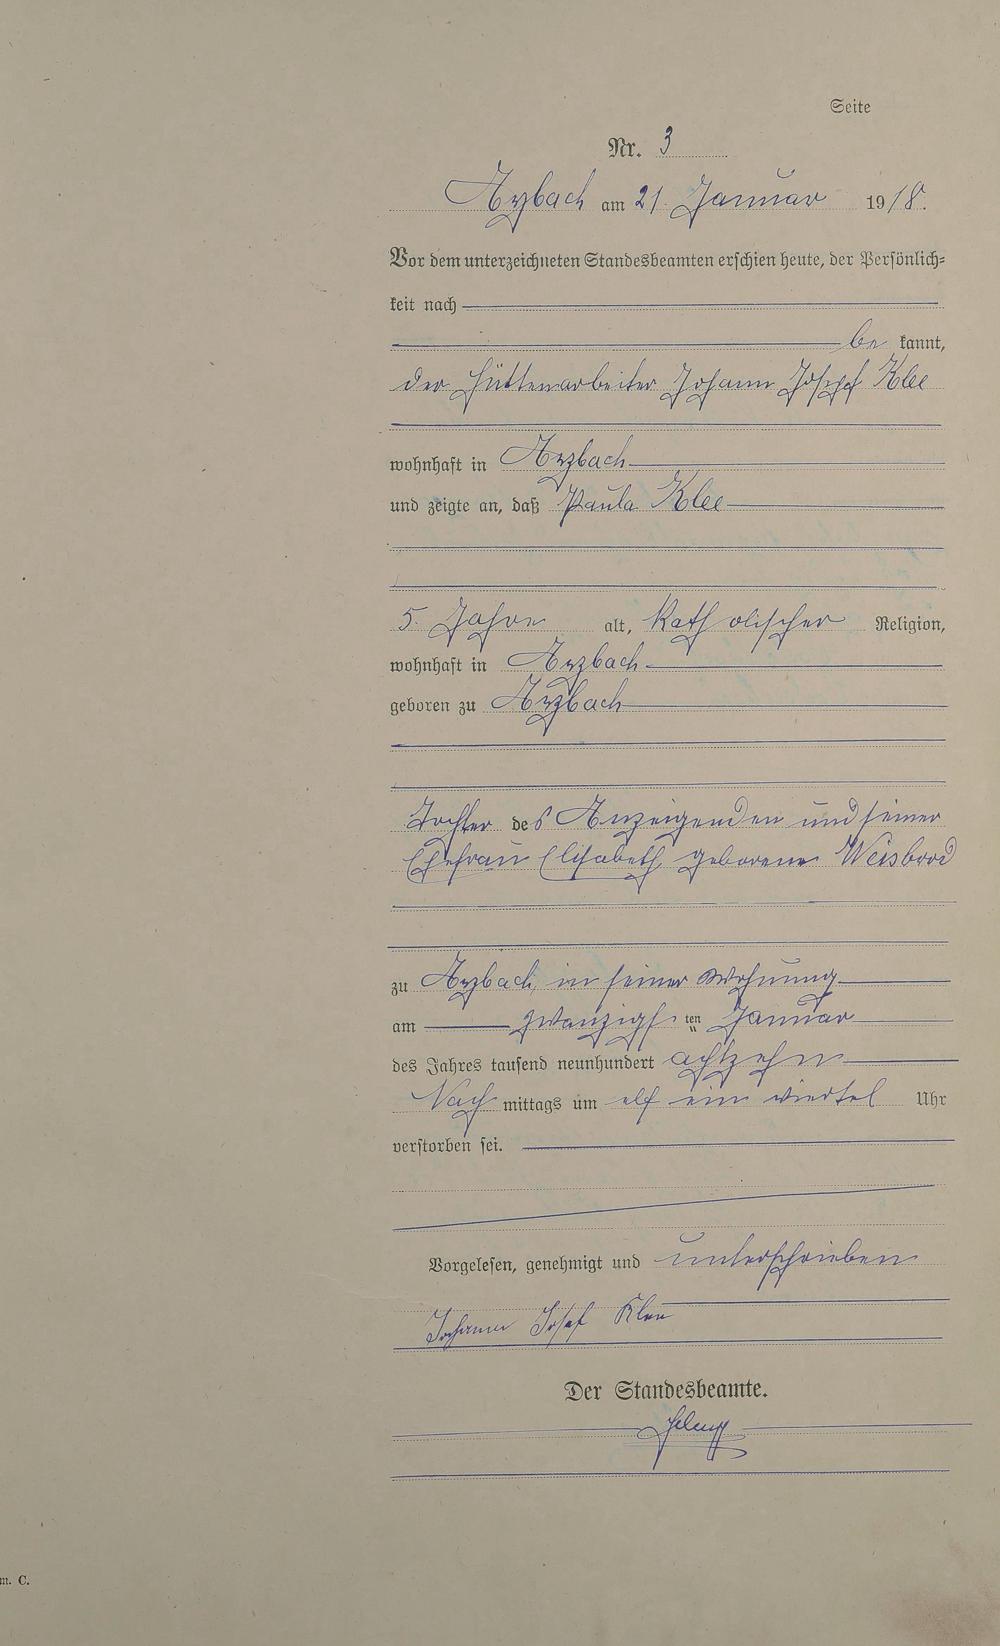 Seite
Nr. 3
Arzbach am 21. Januar 1918.
Vor dem unterzeichneten Standesbeamten erschien heute, der Persönlich-
keit nach
be kannt,
der Hüttenarbeiter Johann Joseph Klee
wohnhaft in Arzbach
und zeigte an, daß Paula Klee
5 Jahre alt, katholischer Religion,
wohnhaft in Arzbach
geboren zu Arzbach
Tochter des Anzeigenden und seiner
Ehefrau Elisabeth geborene Weisbrod
zu Arzbach, in seiner Wohnung
am zwanzigsten Januar
des Jahres tausend neunhundert achtzehn
Nach mittags um elf ein viertel Uhr
verstorben sei.
Vorgelesen, genehmigt und unterschrieben
Johann Josef Klee
Der Standesbeamte.
m. C.